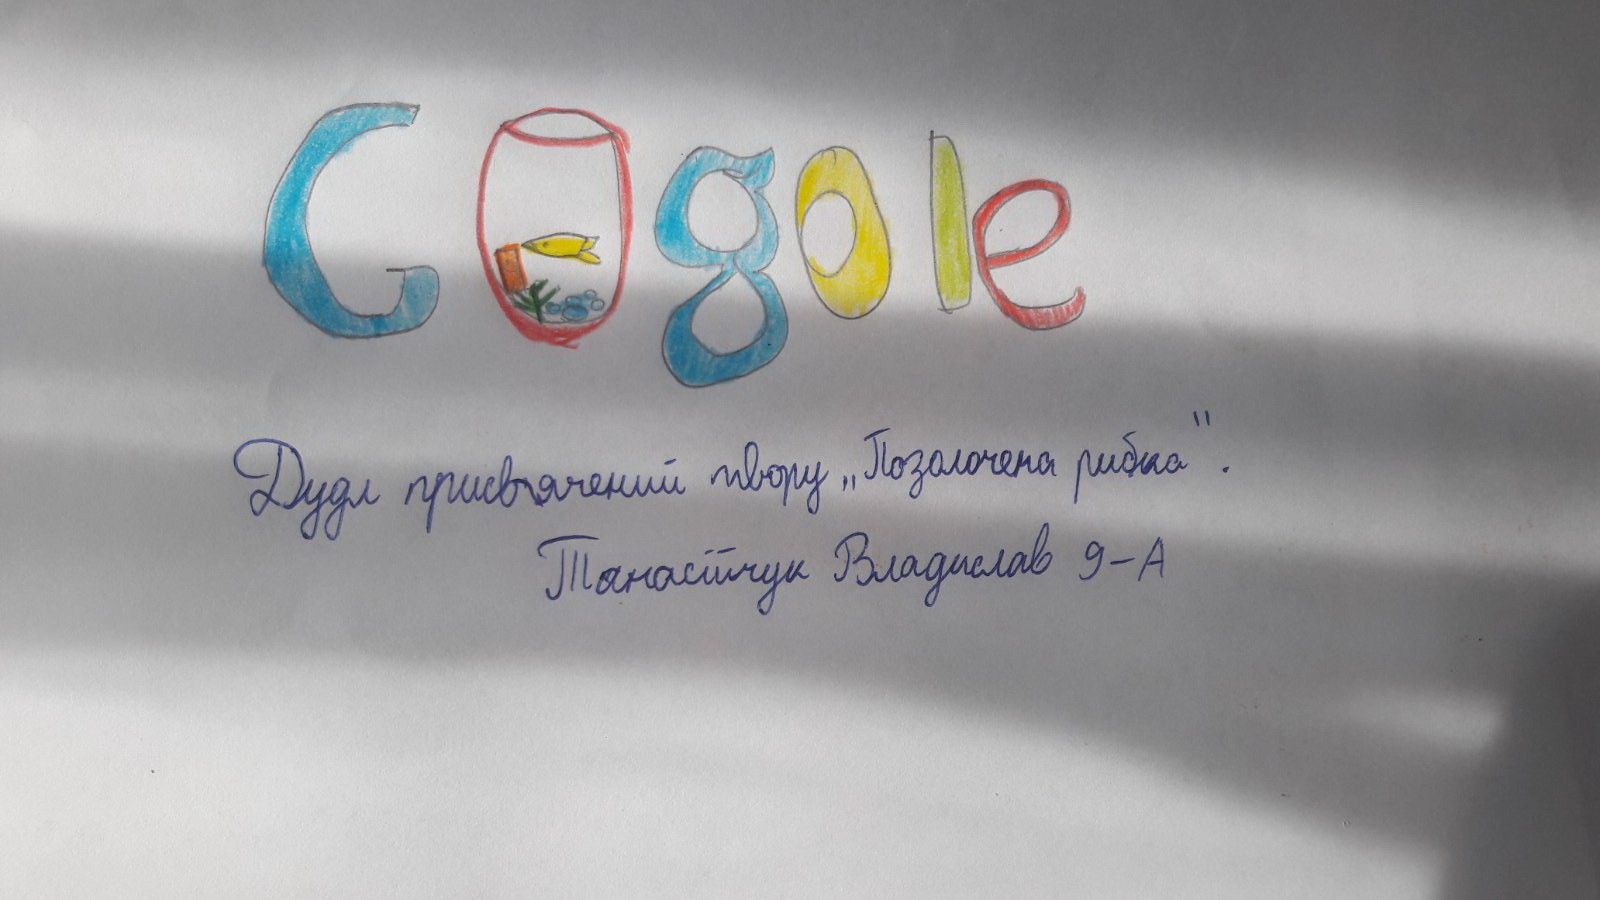 Gogole
Дудл присвячений твору „Позолочена рибка".
Танасійчук Владислав 9-А